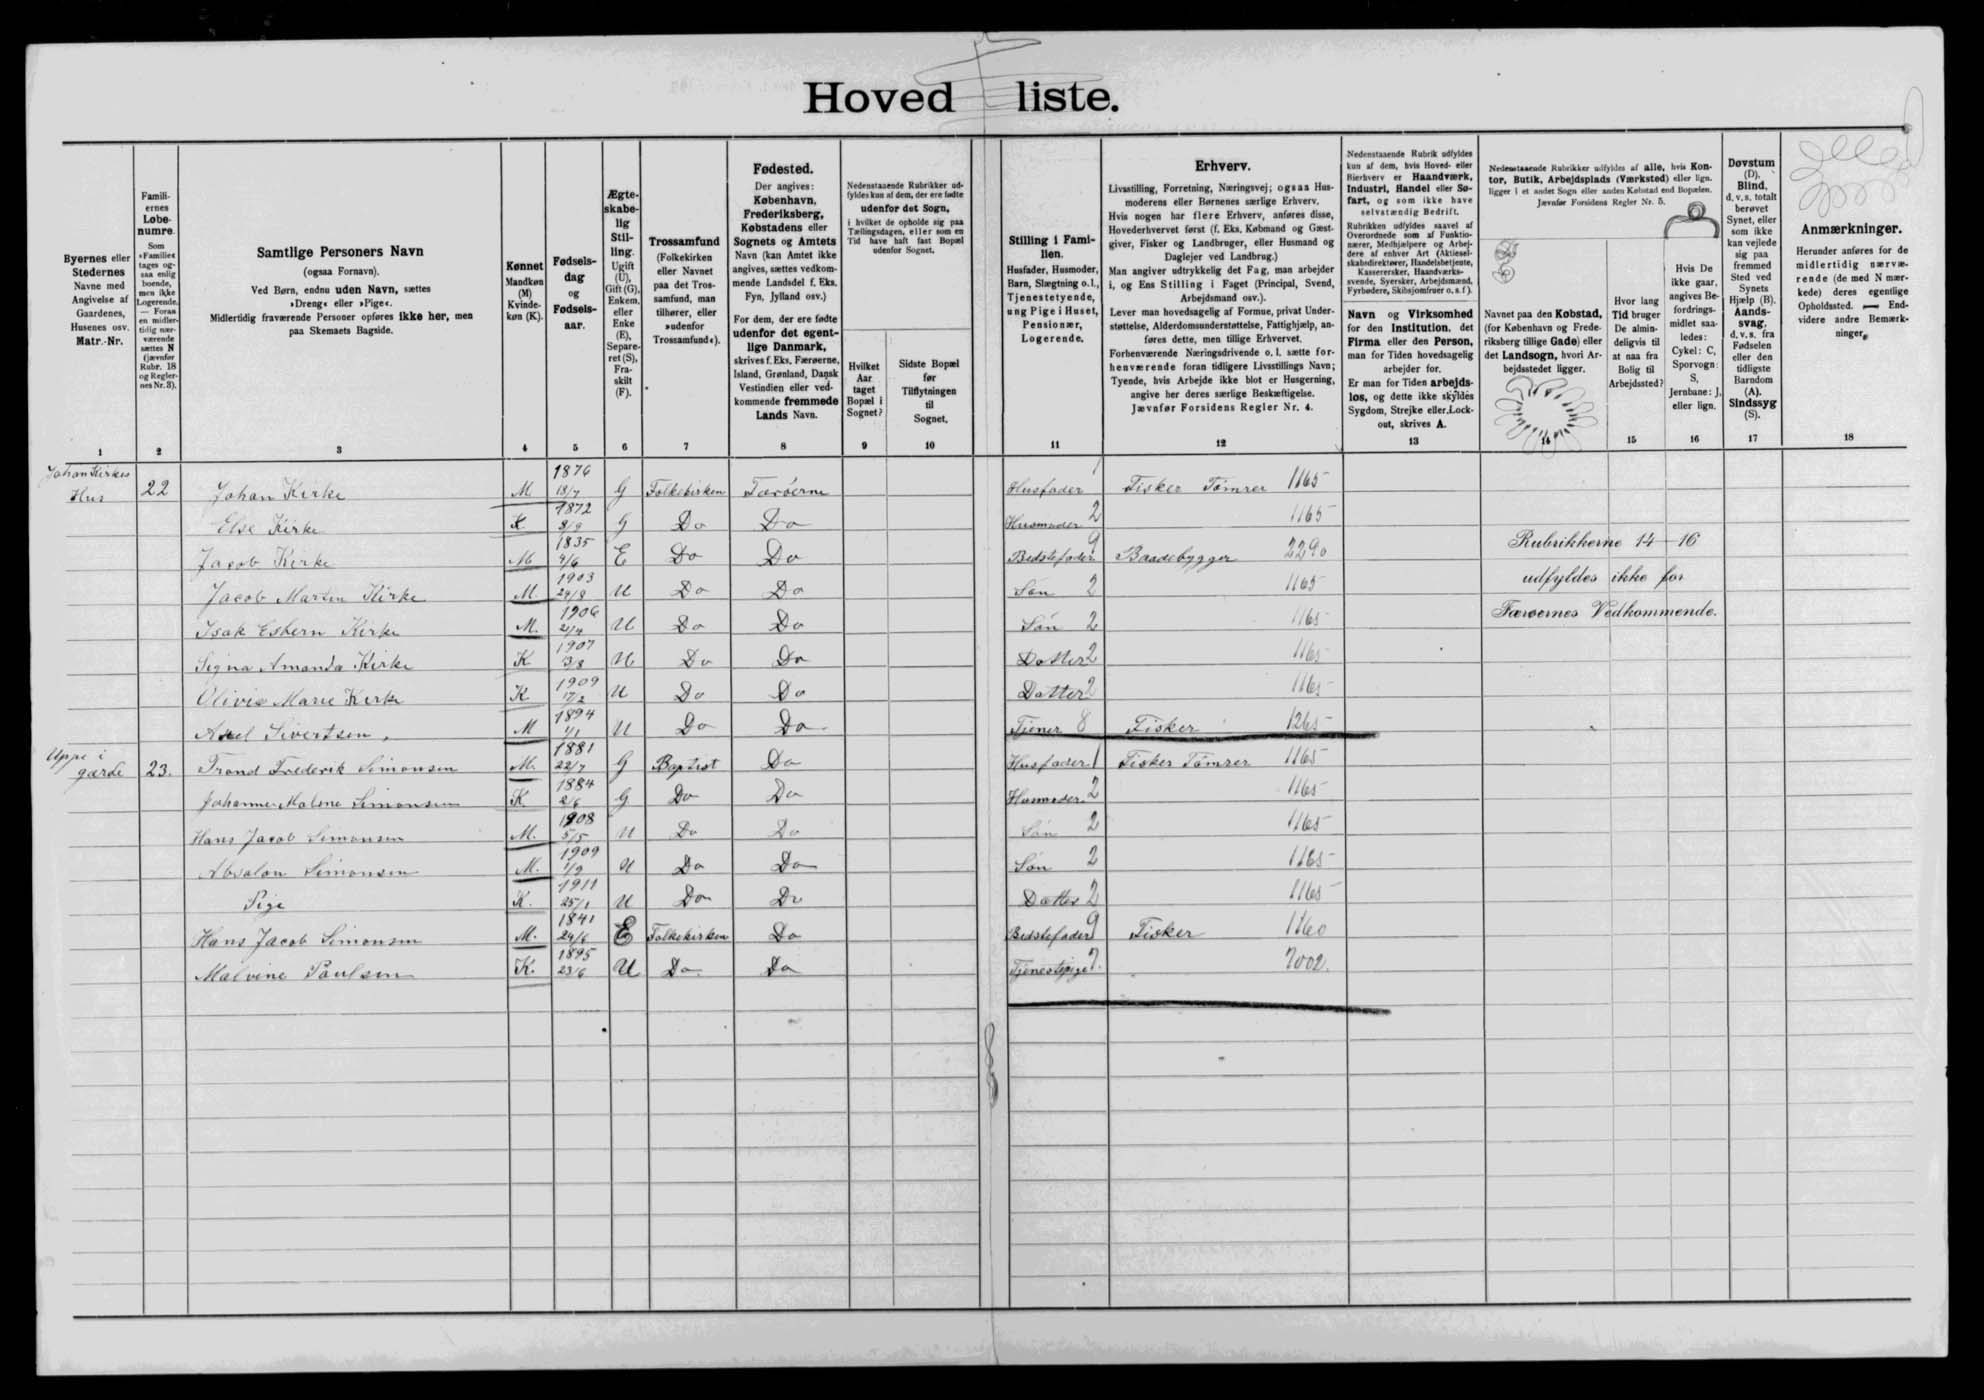 Hoved liste.
Byernes eller
Stedernes
Navne med
Angivelse af
Gaardenes,
Husenes osv.
Matr.-Nr.
Famili-
ernes
Løbe-
numre.
Som
»Familie«
tages og-
saa enlig
boende,
men ikke
Logerende.
— Foran
en midler-
tidig nær-
værende
sættes N
(jævnfør
Rubr. 18
og Regler-
nes Nr. 3).
Samtlige Personers Navn
(ogsaa Fornavn).
Ved Børn, endnu uden Navn, sættes
»Dreng« eller »Pige«.
Midlertidig fraværende Personer opføres ikke her, men
paa Skemaets Bagside.
Kønnet
Mandkøn
(M)
Kvinde-
køn (K).
Fødsels-
dag
og
Fødsels-
aar.
Ægte-
skabe-
lig
Stil-
ling.
Ugift
(U),
Gift (G),
Enkem.
eller
Enke
(E),
Separe-
ret (S),
Fra-
skilt
(F).
Trossamfund
(Folkekirken
eller Navnet
paa det Tros-
samfund, man
tilhører, eller
»udenfor
Trossamfund«).
Fødested.
Der angives:
København,
Frederiksberg,
Købstadens eller
Sognets og Amtets
Navn (kan Amtet ikke
angives, sættes vedkom-
mende Landsdel f. Eks.
Fyn, Jylland osv.)
For dem, der ere fødte
udenfor det egent-
lige Danmark,
skrives f. Eks. Færøerne,
Island, Grønland, Dansk
Vestindien eller ved-
kommende fremmede
Lands Navn.
Nedenstaaende Rubrikker ud-
fyldes kun af dem, der ere fødte
udenfor det Sogn,
i hvilket de opholde sig paa
Tællingsdagen, eller som en
Tid have haft fast Bopæl
udenfor Sognet.
Hvilket
Aar
taget
Bopæl i
Sognet?
Sidste Bopæl
før
Tilflytningen
til
Sognet.
Stilling i Fami-
lien.
Husfader, Husmoder,
Barn, Slægtning o. l.,
Tjenestetyende,
ung Pige i Huset,
Pensionær,
Logerende.
Erhverv.
Livsstilling, Forretning, Næringsvej; ogsaa Hus-
moderens eller Børnenes særlige Erhverv.
Hvis nogen har flere Erhverv, anføres disse,
Hovederhvervet først (f. Eks. Købmand og Gæst-
giver, Fisker og Landbruger, eller Husmand og
Daglejer ved Landbrug.)
Man angiver udtrykkelig det Fag, man arbejder
i, og Ens Stilling i Faget (Principal, Svend,
Arbejdsmand osv.).
Lever man hovedsagelig af Formue, privat Under-
støttelse, Alderdomsunderstøttelse, Fattighjælp, an-
føres dette, men tillige Erhvervet.
Forhenværende Næringsdrivende o. l. sætte for-
henværende foran tidligere Livsstillings Navn;
Tyende, hvis Arbejde ikke blot er Husgerning,
angive her deres særlige Beskæftigelse.
Jævnfør Forsidens Regler Nr. 4.
Nedenstaaende Rubrik udfyldes
kun af dem, hvis Hoved- eller
Bierhverv er Haandværk,
Industri, Handel eller Sø-
fart, og som ikke have
selvstændig Bedrift.
Rubrikken udfyldes saavel af
Overordnede som af Funktio-
nærer, Medhjælpere og Arbej-
dere af enhver Art (Aktiesel-
skabsdirektører, Handelsbetjente,
Kasserersker, Haandværks-
svende, Syersker, Arbejdsmænd,
Fyrbødere, Skibsjomfruer o. s. f.).
Navn og Virksomhed
for den Institution, det
Firma eller den Person,
man for Tiden hovedsagelig
arbejder for.
Er man for Tiden arbejds-
løs, og dette ikke skyldes
Sygdom, Strejke eller Lock-
out, skrives A.
Nedenstaaende Rubrikker udfyldes af alle, hvis Kon-
tor, Butik, Arbejdsplads (Værksted) eller lign.
ligger i et andet Sogn eller anden Købstad end Bopælen.
Jævnfør Forsidens Regler Nr. 5.
Navnet paa den Købstad,
(for København og Frede-
riksberg tillige Gade) eller
det Landsogn, hvori Ar-
bejdsstedet ligger.
Hvor lang
Tid bruger
De almin-
deligvis til
at naa fra
Bolig til
Arbejdssted?
Hvis De
ikke gaar,
angives Be-
fordrings-
midlet saa-
ledes:
Cykel: C,
Sporvogn:
S,
Jernbane: J,
eller lign.
Døvstum
(D),
Blind,
d. v. s. totalt
berøvet
Synet, eller
som ikke
kan vejlede
sig paa
fremmed
Sted ved
Synets
Hjælp (B).
Aands-
svag,
d. v. s. fra
Fødselen
eller den
tidligste
Barndom
(A).
Sindssyg
(S).
Anmærkninger.
Herunder anføres for de
midlertidig nærvæ-
rende (de med N mær-
kede) deres egentlige
Opholdssted. — End-
videre andre Bemærk-
ninger.
1 2 3 4 5 6 7 8 9 10 11 12 13 14 15 16 17 18
Johan Kirkes
Hus 22 Johan Kirke M. 1876 18/7 G Folkekirken Færöerne Husfader 1 Fisker Tömrer 1165
Else Kirke K. 1872 8/9 G Do Do Husmoder 2 1165
Jacob Kirke M 1835 4/6 E Do Do Bedstefader 9 Baadebygger 2290
Jacob Martin Kirke M. 1903 29/8 U Do Do Sön 2 1165
Isak Esbern Kirke M. 1906 2/4 U Do Do Sön 2 1165
Signa Amanda Kirke K 1907 3/8 U Do Do Datter 2 1165
Olivia Marie Kirke K 1909 17/2 U Do Do Datter 2 1165
Axel Sivertsen. M 1894 1/1 U Do Do Tjener 8 Fisker 1265
Uppe i
gærde 23. Trond Frederik Simonsen M. 1881 22/7 G Baptist Do Husfader 1 Fisker Tömrer 1165
Johanne Malene Simonsen K. 1884 2/6 G Do Do Husmoder. 2 1165
Hans Jacob Simonsen M. 1908 5/5 U Do Do Sön 2 1165
Absalon Simonsen M. 1909 1/9 U Do Do Sön 2 1165
Pige K. 1911 25/1 U Do Do Datter 2 1165
Hans Jacob Simonsen M. 1841 24/6 E Folkekirken Do Bedstefader 9 Fisker 1160
Malvine Poulsen K. 1895 23/6 U Do. Do Tjenestepige 7. 7002.
Rubrikkerne 14-16
udfyldes ikke for
Færøernes Vedkommende.